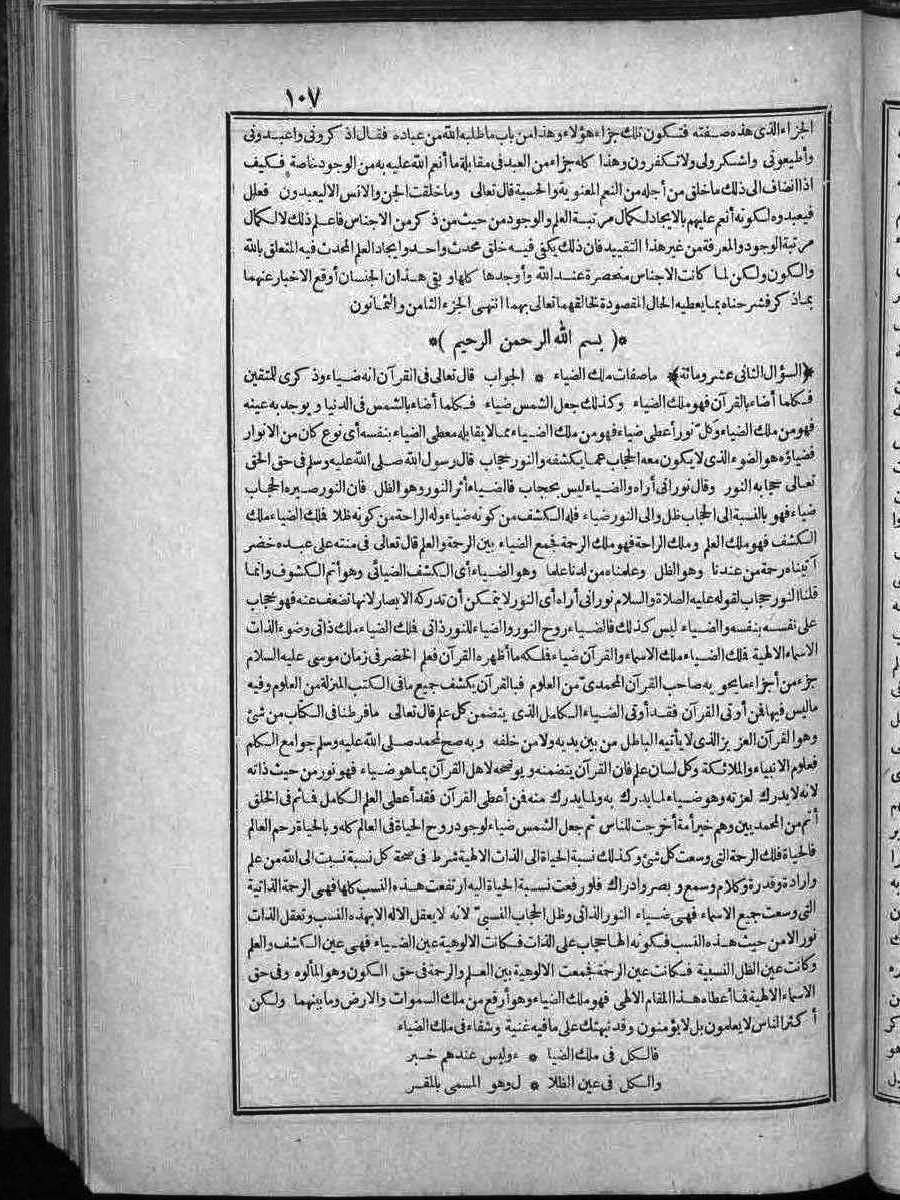 ١٠٧
الجزاء الذى هذه صفته فتكون تلك جزاء هؤلاء وهذا من باب ما طلبه الله من عباده فقال اذكرونى واعبدونى
وأطيعونى واشكرولى ولا تكفرون وهذا كله جزاء من العبد فى مقابلة ما أنعم الله عليه به من الوجود خاصة فكيف
اذا انضاف الى ذلك ما خلق من أجله من النعم المعنوية والحسية قال تعالى وما خلقت الجن والانس الا ليعبدون فعلل
فيعبدوه لكونه أنعم عليهم بالايجاد لكمال مرتبة العلم والوجود من حيث من ذكر من الاجناس فاعلم ذلك لا لكمال
مرتبة الوجود والمعرفة من غير هذا التقييد فان ذلك يكفى فيه خلق محدث واحد وايجاد العلم المحدث فيه المتعلق بالله
والكون ولكن لما كانت الاجناس منحصرة عند الله وأوجدها كلها وبقى هذان الجنسان أوقع الاخبار عنهما
بما ذكر فشرحناه بما يعطيه الحال المقصودة لخالقهما تعالى بهما انتهى الجزء الثامن والثمانون
*( بسم الله الرحمن الرحيم )*
﴿السؤال الثانى عشر ومائة﴾ ما صفات ملك الضياء * الجواب قال تعالى فى القرآن انه ضياء وذكرى للمتقين
فكلما أضاء بالقرآن فهو ملك الضياء وكذلك جعل الشمس ضياء فكلما أضاء بالشمس فى الدنيا ويوجد به عينه
فهو من ملك الضياء وكل نور أعطى ضياء فهو من ملك الضياء مما لا يقابله معطى الضياء بنفسه أى نوع كان من الانوار
فضياؤه هو الضوء الذى لا يكون معه الحجاب عما يكشفه والنور حجاب قال رسول الله صلى الله عليه وسلم فى حق الحق
تعالى حجابه النور وقال نورانى أراه والضياء ليس بحجاب فالضياء أثر النور وهو الظل فان النور صيره الحجاب
ضياء فهو بالنسبة الى الحجاب ظل والى النور ضياء فله الكشف من كونه ضياء وله الراحة من كونه ظلا فلك الضياء ملك
الكشف فهو ملك العلم وملك الراحة فهو ملك الرحمة فجمع الضياء بين الرحمة والعلم قال تعالى فى منته على عبده خضر
آتيناه رحمة من عندنا وهو الظل وعلمناه من لدنا علما وهو الضياء أى الكشف الضيائى وهو أتم الكشوف وانما
قلنا النور حجاب لقوله عليه الصلاة والسلام نورانى أراه أى النور لا يتمكن أن تدركه الابصار لانها تضعف عنه فهو حجاب
على نفسه بنفسه والضياء ليس كذلك فالضياء روح النور والضياء للنور ذاتى فلك الضياء ملك ذاتى وضوء الذات
الاسماء الالهية فلك الضياء ملك الاسماء والقرآن ضياء فلكه ما أظهره القرآن فعلم الخضر فى زمان موسى عليه السلام
جزء من أجزاء ما يحويه صاحب القرآن المحمدى من العلوم فبالقرآن يكشف جميع ما فى الكتب المنزلة من العلوم وفيه
ما ليس فيها فمن أوتى القرآن فقد أوتى الضياء الكامل الذى يتضمن كل علم قال تعالى ما فرطنا فى الكتاب من شئ
وهو القرآن العزيز الذى لا يأتيه الباطل من بين يديه ولا من خلفه وبه صح لمحمد صلى الله عليه وسلم جوامع الكلم
فعلوم الانبياء والملائكة وكل لسان علم فان القرآن يتضمنه ويوضحه لاهل القرآن بما هو ضياء فهو نور من حيث ذاته
لانه لا يدرك لعزته وهو ضياء لما يدرك به ولما يدرك منه فمن أعطى القرآن فقد أعطى العلم الكامل فما ثم فى الخلق
أتم من المحمديين وهم خير أمة أخرجت للناس ثم جعل الشمس ضياء لوجود روح الحياة فى العالم كله وبالحياة رحم العالم
فالحياة فلك الرحمة التى وسعت كل شئ وكذلك نسبة الحياة الى الذات الالهية شرط فى صحة كل نسبة نسبت الى الله من علم
وارادة وقدرة وكلام وسمع وبصر وادراك فلو رفعت نسبة الحياة اليه ارتفعت هذه النسب كلها فهى الرحمة الذاتية
التى وسعت جميع الاسماء فهى ضياء النور الذاتى وظل الحجاب النسبى لانه لا يعقل الاله الا بهذه النسب وتعقل الذات
نورا لا من حيث هذه النسب فكونه الها حجاب على الذات فكانت الالوهية عين الضياء فهى عين الكشف والعلم
وكانت عين الظل النسبية فكانت عين الرحمة فجمعت الالوهية بين العلم والرحمة فى حق الكون وهو المألوه وفى حق
الاسماء الالهية فما أعطاه هذا المقام الالهى فهو ملك الضياء وهو أرفع من ملك السموات والارض وما بينهما ولكن
أكثر الناس لا يعلمون بل لا يؤمنون وقد نبهتك على ما فيه غنية وشفاء فى ملك الضياء
فالكل فى ملك الضيا * ء وليس عندهم خبر
والكل فى عين الظلا * ل وهو المسمى بالمقر